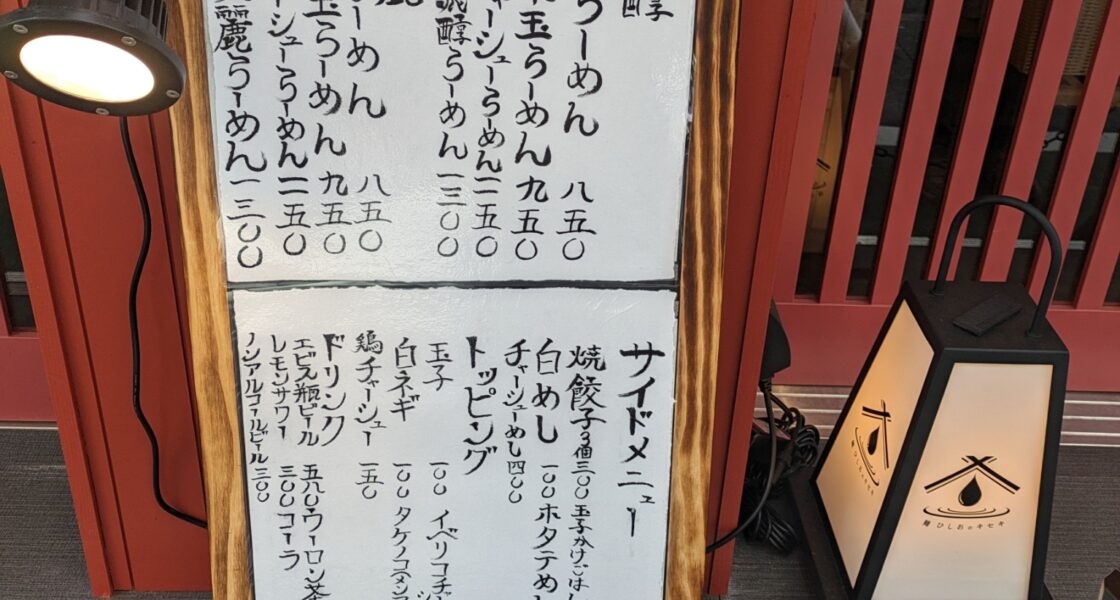 醇
らーめん 八五〇
玉らーめん 九五〇
チャーシューらーめん 一一五〇
醇らーめん 一三〇〇
らーめん 八五〇
玉らーめん 九五〇
ーシューらーめん 一一五〇
麗らーめん 一三〇〇
サイドメニュー
焼餃子3個 三〇〇 玉子かけごはん
白めし 一〇〇 ホタテめし
チャーシューめし 四〇〇
トッピング
玉子 一〇〇 イベリコチャー
白ネギ 一〇〇 タケノコメンマ
鶏チャーシュー 一五〇
ドリンク
エビス瓶ビール 五八〇 ウーロン茶
レモンサワー 三〇〇 コーラ
ノンアルコールビール 三〇〇
麺 ひしおのキセキ
麺 ひしおのキセキ